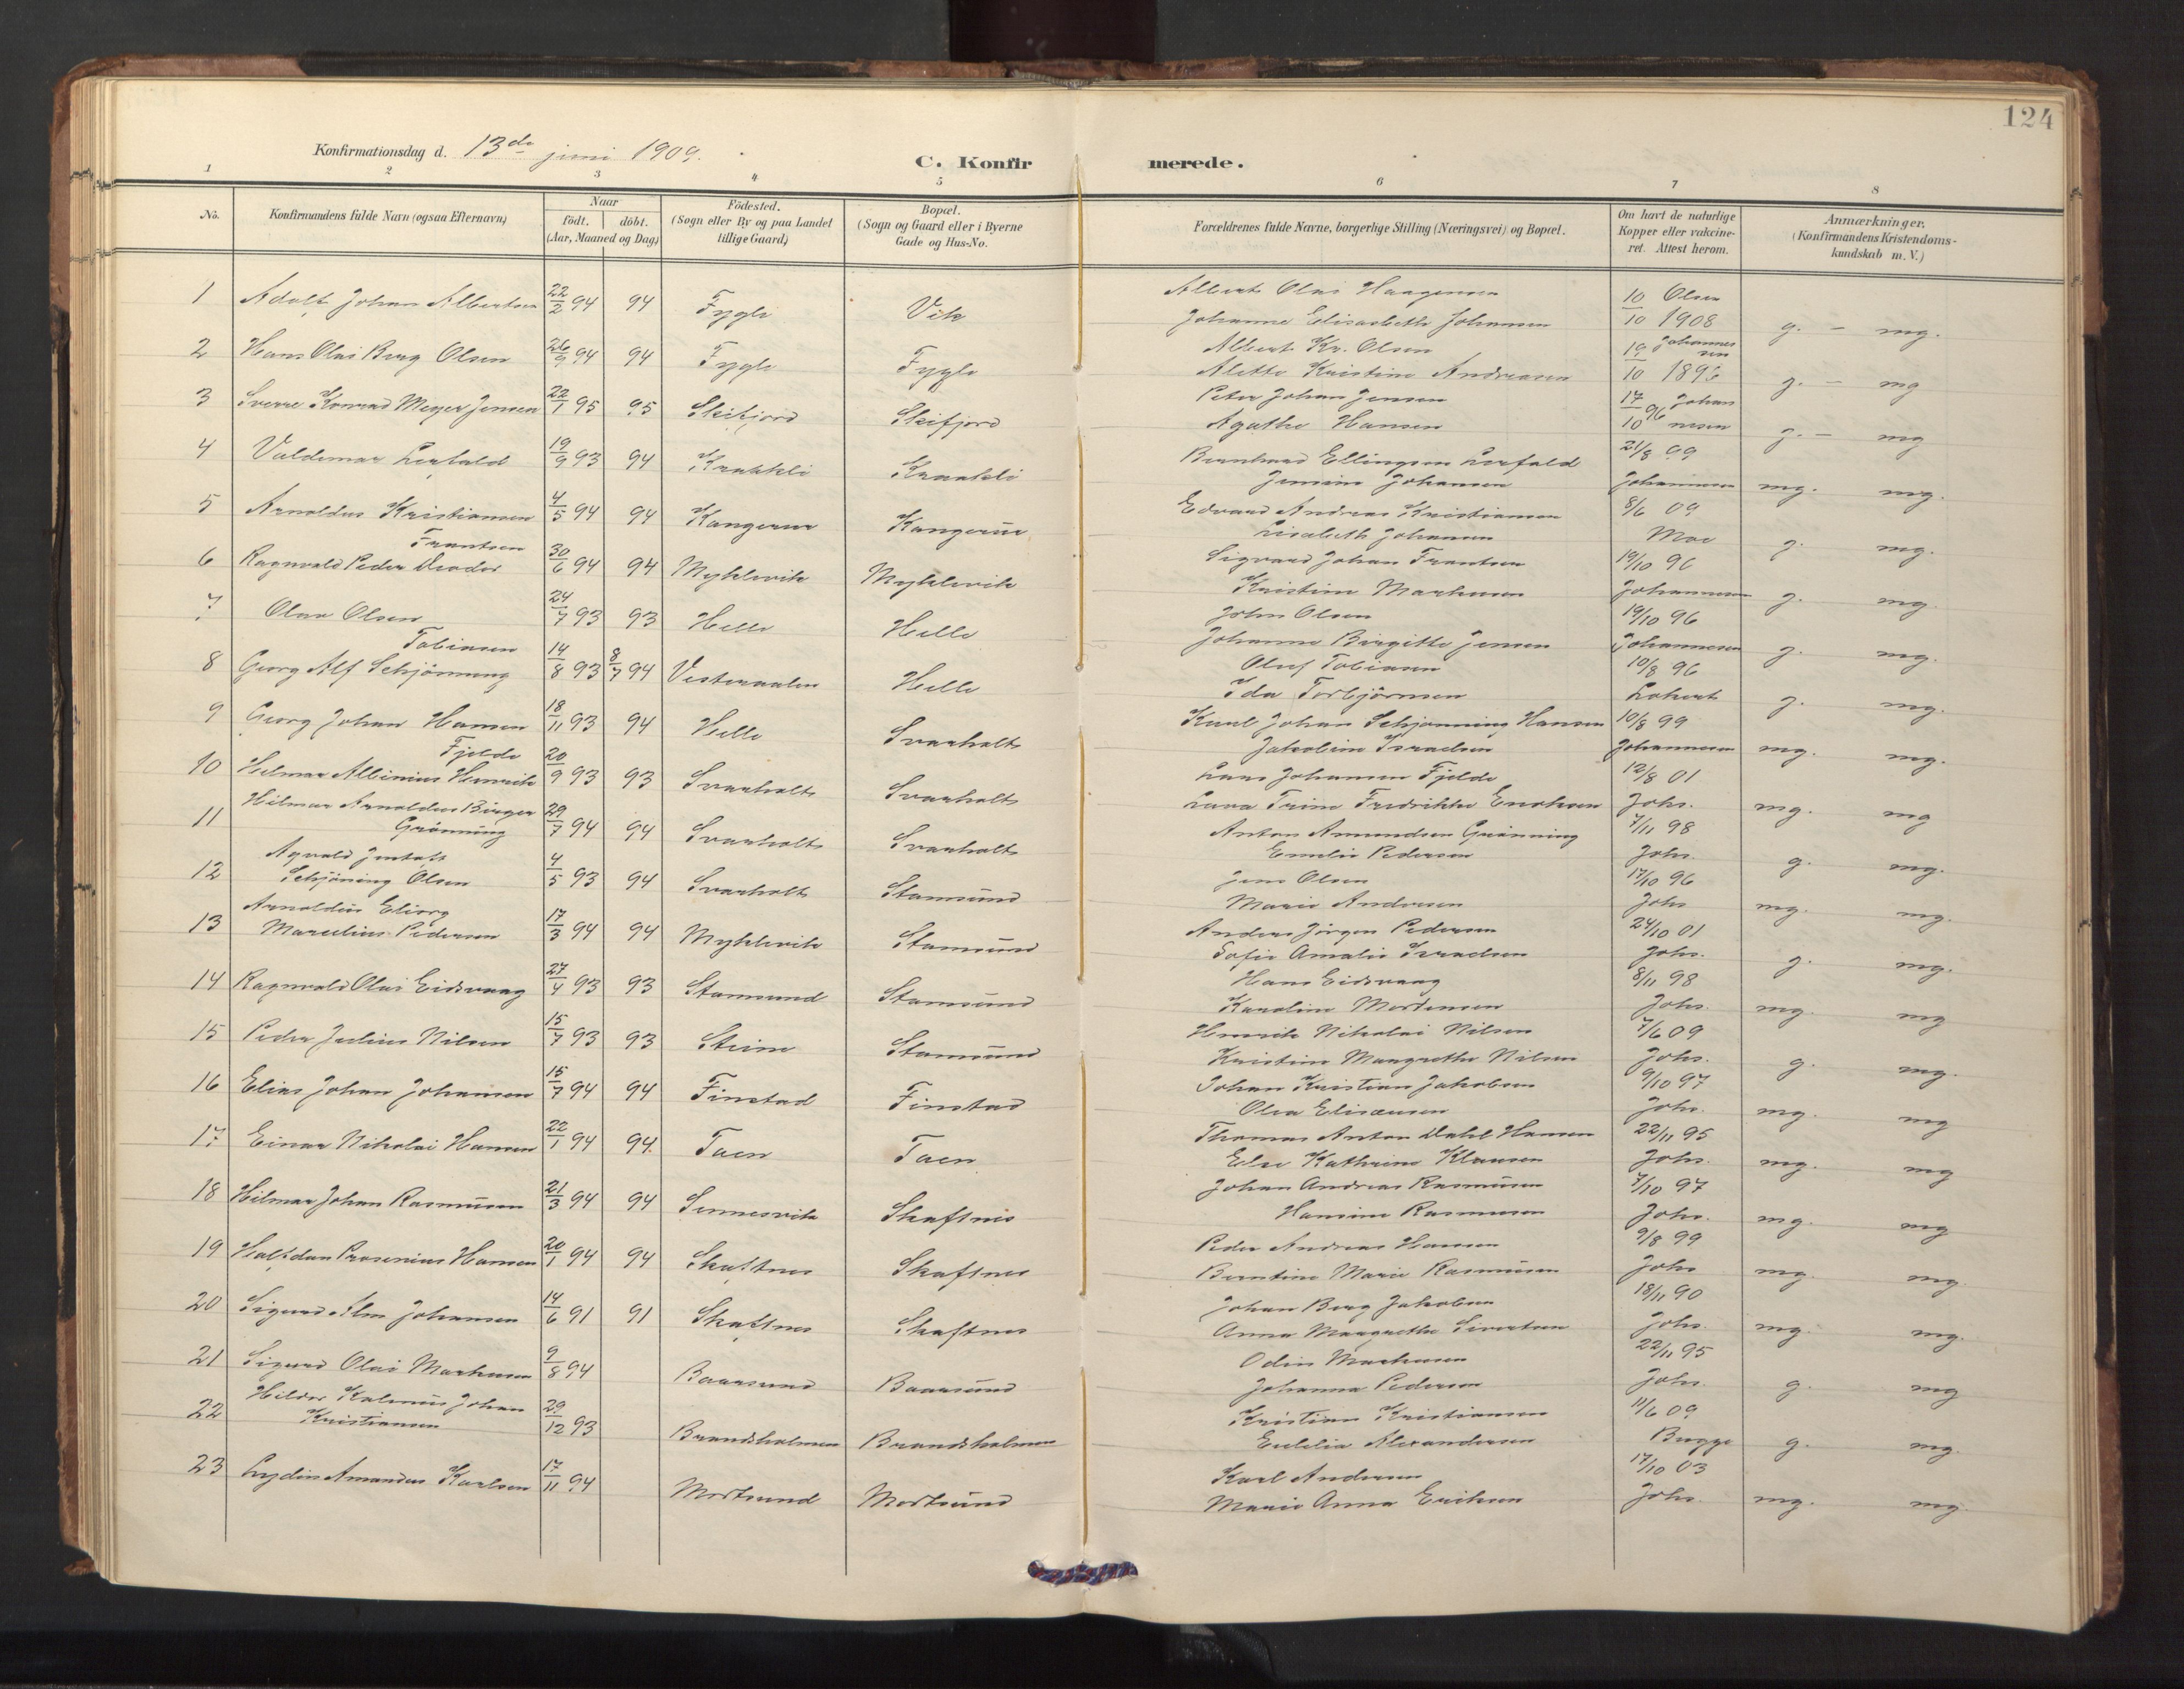 124
Konfirmationsdag d. 13de juni 1909.
C. Konfir merede.
1 2 3 4 5 6 7 8
No. Konfirmandens fulde Navn (ogsaa Efternavn) Naar födt. döbt. (Aar, Maaned og Dag) Födested. (Sogn eller By og paa Landet tillige Gaard) Bopæl. (Sogn og Gaard eller i Byerne Gade og Hus-No. Forældrenes fulde Navne, borgerlige Stilling (Næringsvei) og Bopæl. Om havt de naturlige Kopper eller vakcineret. Attest herom. Anmærkninger. (Konfirmandens Kristendomskundskab m. V.)
1 Adolf Johan Albertsen 22/2 94 94 Fygle Vik Albert Olai Haagensen 10/10 Olsen 1908 g. - mg.
Johanne Elisabeth Johansen
2 Hans Olai Berg Olsen 26/9 94 94 Fygle Fygle Albert Kr. Olsen 19/10 Johannessen 1896 g. - mg
Alette Kristine Andreasen
3 Sverre Konrad Meyer Jensen 22/1 95 95 Skifjord Skifjord Peter Johan Jensen 17/10 96 Johannesen g. - mg
Agathe Hansen
4 Valdemar Lerfald 19/9 93 94 Kraakli Kraakli Bernhard Ellingsen Lerfald 21/8 99 mg. mg.
Jensine Johansen Johannesen
5 Arnoldus Kristiansen 4/5 94 94 Kangerur Kangerur Edvard Andreas Kristiansen 8/6 09 g. mg.
Lisabeth Johansen Moe
6 Ragnvald Peder Deodor Frantsen 30/6 94 94 Myklevik Myklevik Sigvard Johan Frantsen 19/10 96 g. mg.
Kristine Markusen Johannesen
7 Olav Olsen 24/7 93 93 Helle Helle John Olsen 19/10 96 g. mg.
Johanne Birgitte Jensen Johannesen
8 Georg Alf Schjönning Tobiasen 14/8 93 8/7 94 Vesteraalen Helle Oluf Tobiasen 10/8 96 g. mg.
Ida Torbjörnsen
9 Georg Johan Hansen 18/11 93 94 Helle Svarholt Karl Johan Schjönning Hansen 10/8 99 mg. mg.
Jakobine Israelsen Johannesen
10 Helmar Albinius Henrik Fjelde 20/9 93 93 Svarholt Svarholt Lars Johansen Fjelde 12/8 01 mg. mg
Lava Trine Fredrikke Enoksen Johs.
11 Hilmar Arnoldus Birger Grönning 29/7 94 94 Svarholt Svarholt Anton Amundsen Grönning 7/11 98 g. mg.
Emelie Pedersen Johs.
12 Agvald Gustaft Schjöning Olsen 4/5 93 94 Svarholt Stamsund Jens Olsen 17/10 96 mg. mg.
Marie Andersen Johs
13 Arnoldus Eliorg Marselius Pedersen 17/3 94 94 Myklevik Stamsund Anders Jörgen Pedersen 24/10 01 g. mg.
Sofie Amalie Israelsen Johs.
14 Ragnvald Olai Eidsvaag 27/4 93 93 Stamsund Stamsund Hans Eidsvaag 8/11 98 mg. mg
Karoline Mortensen Johs.
15 Peder Julius Nilsen 15/7 93 93 Steine Stamsund Henrik Nikolai Nilsen 7/6 09 g. mg.
Kristine Margrethe Nilsen Johs.
16 Elias Johan Johansen 15/7 94 94 Finstad Finstad Johan Kristian Jakobsen 9/10 97 mg. mg
Olea Eliseussen Johs.
17 Einar Nikolai Hansen 22/1 94 94. Taen Taen Thomas Anton Dahl Hansen 22/11 95 mg. mg
Else Kathrine Klausen Johs.
18 Hilmar Johan Rasmusen 21/3 94 94 Sennesvik Skaftnes Johan Andreas Rasmusen 7/10 97 mg. mg
Hansine Rasmusen Johs.
19 Halfdan Prosenius Hansen 20/1 94 94 Skaftnes Skaftnes Peder Andreas Hansen 9/8 99 mg. mg.
Berntine Marie Rasmusen Johs
20 Sigurd Alm Johansen 14/6 91 91 Skaftnes Skaftnes Johan Berg Jakobsen 18/11 90 mg. mg.
Anna Margrethe Sivertsen Johs.
21 Sigurd Olai Markusen 9/8 94 Baarsund Baarsund Odin Markusen 22/11 95 g. mg
Johanna Pedersen Johs.
22 Hildor Kalmus Johan Kristiansen 29/12 93 Brandsholmen Brandsholmen Kristian Kristiansen 11/6 09 g. mg.
Eulelia Alexandersen Bugge
23 Lydin Amandus Karlsen 17/11 94 Mortsund Mortsund Karl Andersen 17/10 03 mg. mg.
Marie Anna Eriksen Johs.